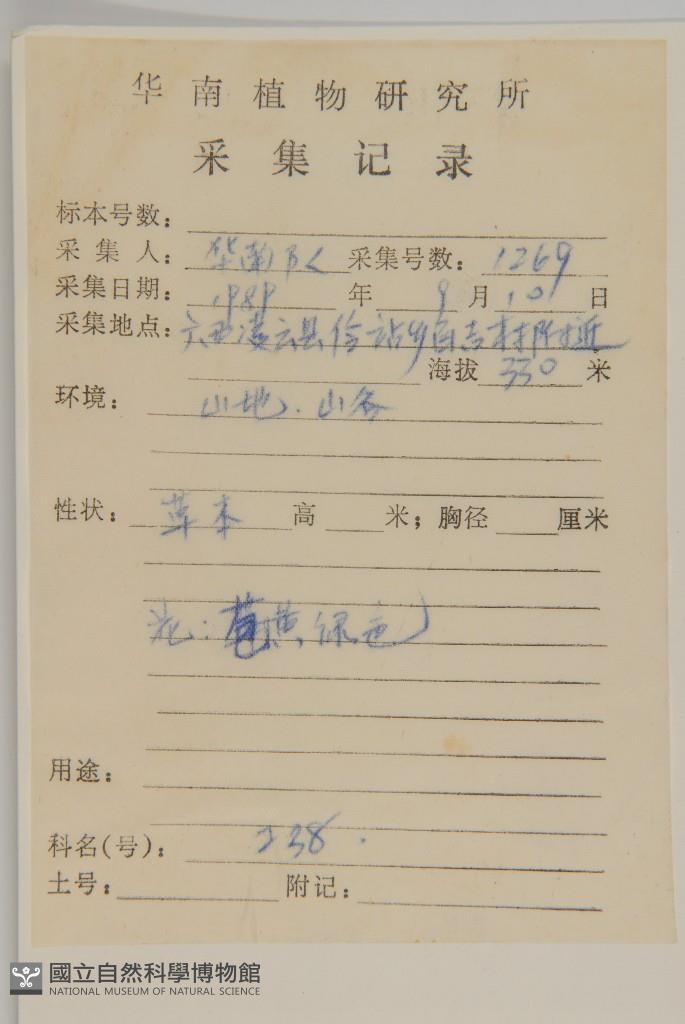 华南植物研究所
采集记录
标本号数：
采集人：华南队 采集号数：1269
采集日期：1989年9月10日
采集地点：广西凌云县伶站乡百吉村附近
海拔 330 米
环境：山地. 山谷
性状：草本 高 米；胸径 厘米
花: 黄绿色
用途：
科名(号)：238.
土号： 附记：
國立自然科學博物館
NATIONAL MUSEUM OF NATURAL SCIENCE